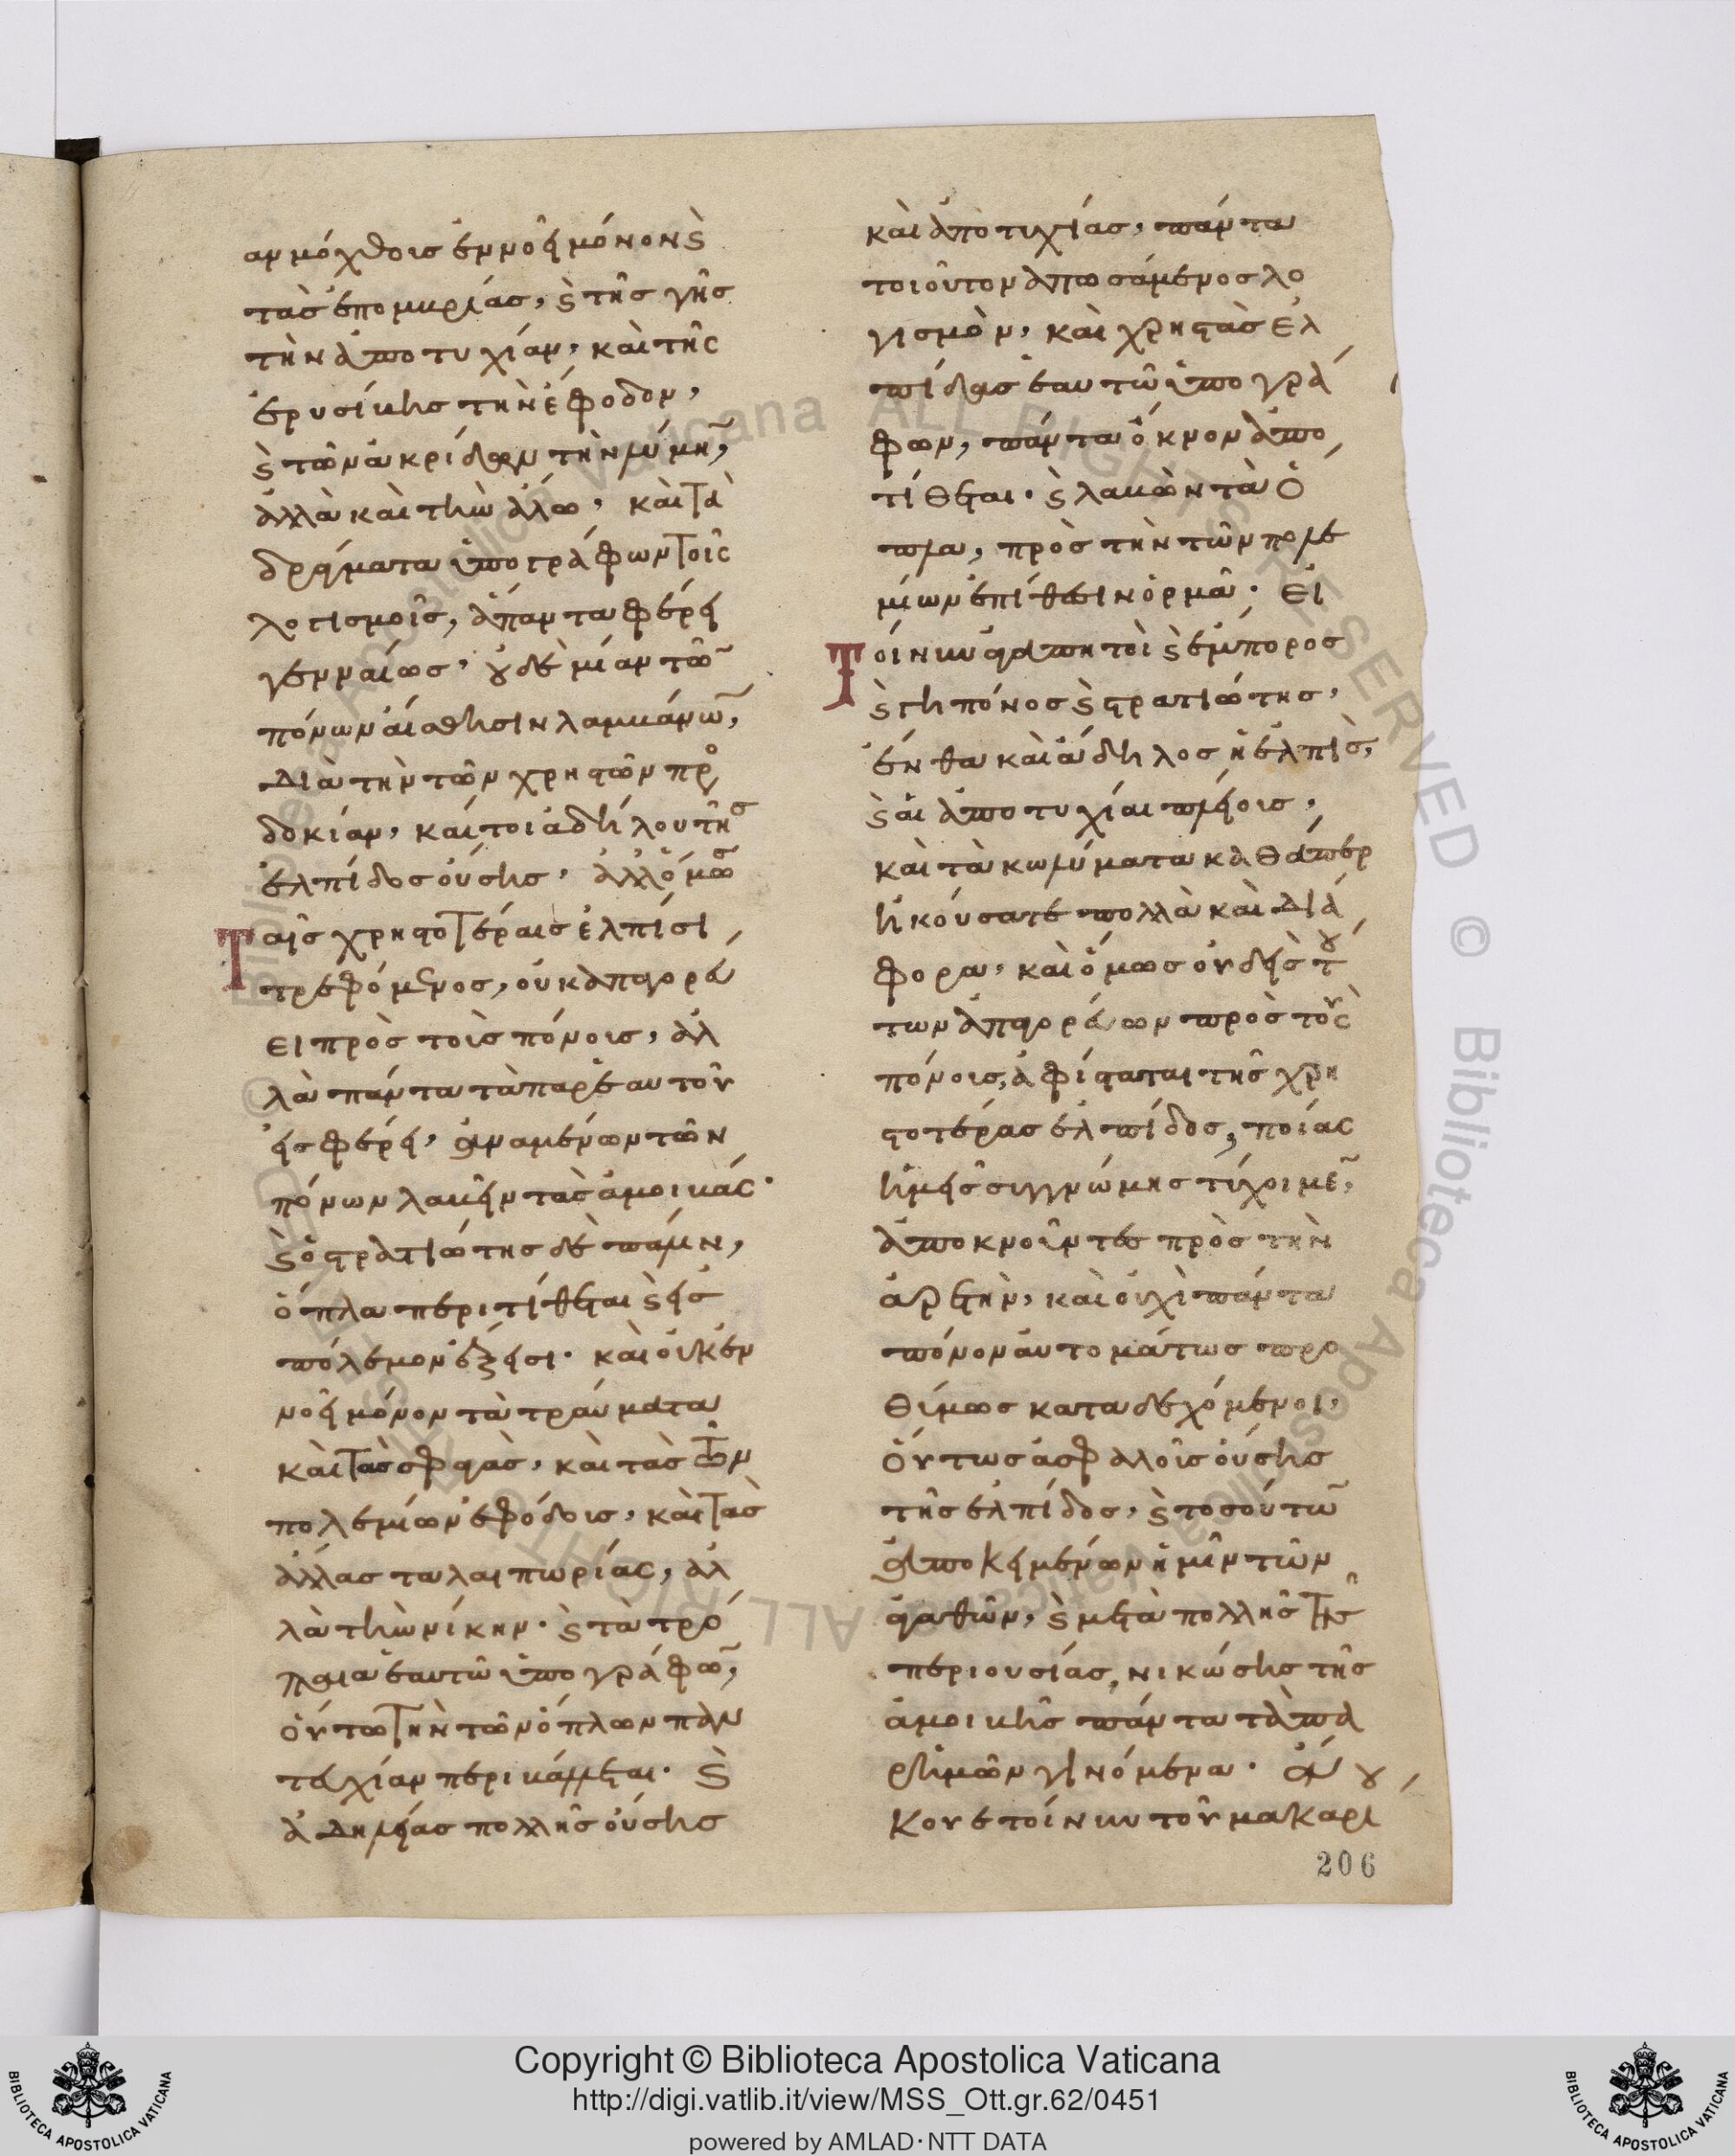 αν μόχθοις ἐννοεῖ μόνον καὶ
τὰς ἐπομβρίας, καὶ τῆς γῆς
τὴν ἀποτυχίαν, καὶ τῆς
ἐρυσίβης τὴν ἔφοδον,
καὶ τῶν ἀκρίδων τὴν λύμην,
ἀλλὰ καὶ τὴν ἅλω, καὶ τὰ
δράγματα ὑπογράφων τοῖς
λογισμοῖς, ἅπαντα φέρει
γενναίως, οὐδεμίαν τῶν
πόνων αἴσθησιν λαμβάνων,
διὰ τὴν τῶν χρηστῶν προσ
δοκίαν, καίτοι ἀδήλου τῆς
ἐλπίδος οὔσης, ἀλλ' ὅμως
ταῖς χρηστοτέραις ἐλπίσι
τρεφόμενος, οὐκ ἀπαγορεύ
ει πρὸς τοῖς πόνοις, ἀλ
λὰ πάντα τὰ παρ' ἑαυτοῦ
εἰσφέρει, ἀναμένων τῶν
πόνων λαβεῖν τὰς ἀμοιβάς.
καὶ ὁ στρατιώτης δὲ πάλιν,
ὅπλα περιτίθεται καὶ εἰς
πόλεμον ἔξεισι. καὶ οὐκ ἐν
νοεῖ μόνον τὰ τραύματα
καὶ τὰς σφαγὰς, καὶ τὰς τῶν
πολεμίων ἐφόδοις, καὶ τὰς
ἄλλας ταλαιπωρίας, ἀλ
λὰ τὴν νίκην. καὶ τὰ τρό
παια ἑαυτῷ ὑπογράφων,
οὕτω τὴν τῶν ὅπλων παν
τευχίαν περιβάλλεται. καὶ
ἀδηλείας πολλῆς οὔσης
καὶ ἀποτυχίας, πάντα
τοιοῦτον ἀπωσάμενος λο
γισμὸν, καὶ χρηστὰς ἐλ
πίδας ἑαυτῷ ὑπογρά
φων, πάντα ὄκνον ἀπο
τίθεται. καὶ λαβὼν τὰ ὅ
πλα, πρὸς τὴν τῶν πολε
μίων ἐπίθεσιν ὁρμᾷ. εἰ
τοίνυν ἀγαπητοὶ καὶ ἔμπορος
καὶ γηπόνος καὶ στρατιώτης,
ἔνθα καὶ ἄδηλος ἡ ἐλπὶς,
καὶ αἱ ἀποτυχίαι πλείοις,
καὶ τὰ κωλύματα καθάπερ
ἠκούσατε πολλὰ καὶ διά
φορα, καὶ ὅμως οὐδεὶς τού
των ἀπαγορεύων πρὸς τοὺς
πόνοις, ἀφίσταται τῆς χρη
στοτέρας ἐλπίδος, ποίας
ἡμεῖς συγγνώμης τύχοιμεν,
ἀποκνοῦντες πρὸς τὴν
ἀρετὴν, καὶ οὐχὶ πάντα
πόνον αὐτομάτως προ
θύμως καταδεχόμενοι,
οὕτως ἀσφαλοῦς οὔσης
τῆς ἐλπίδος, καὶ τοσούτων
ἀποκειμένων ἡμῖν τῶν
ἀγαθῶν, καὶ μετὰ πολλῆς τῆς
περιουσίας, νικώσης τῆς
ἀμοιβῆς πάντα τὰ πα
ρ' ἡμῶν γινόμενα. ἄκου
κουε τοίνυν τοῦ μακαρί
206
Copyright © Biblioteca Apostolica Vaticana
http://digi.vatlib.it/view/MSS_Ott.gr.62/0451
powered by AMLAD·NTT DATA